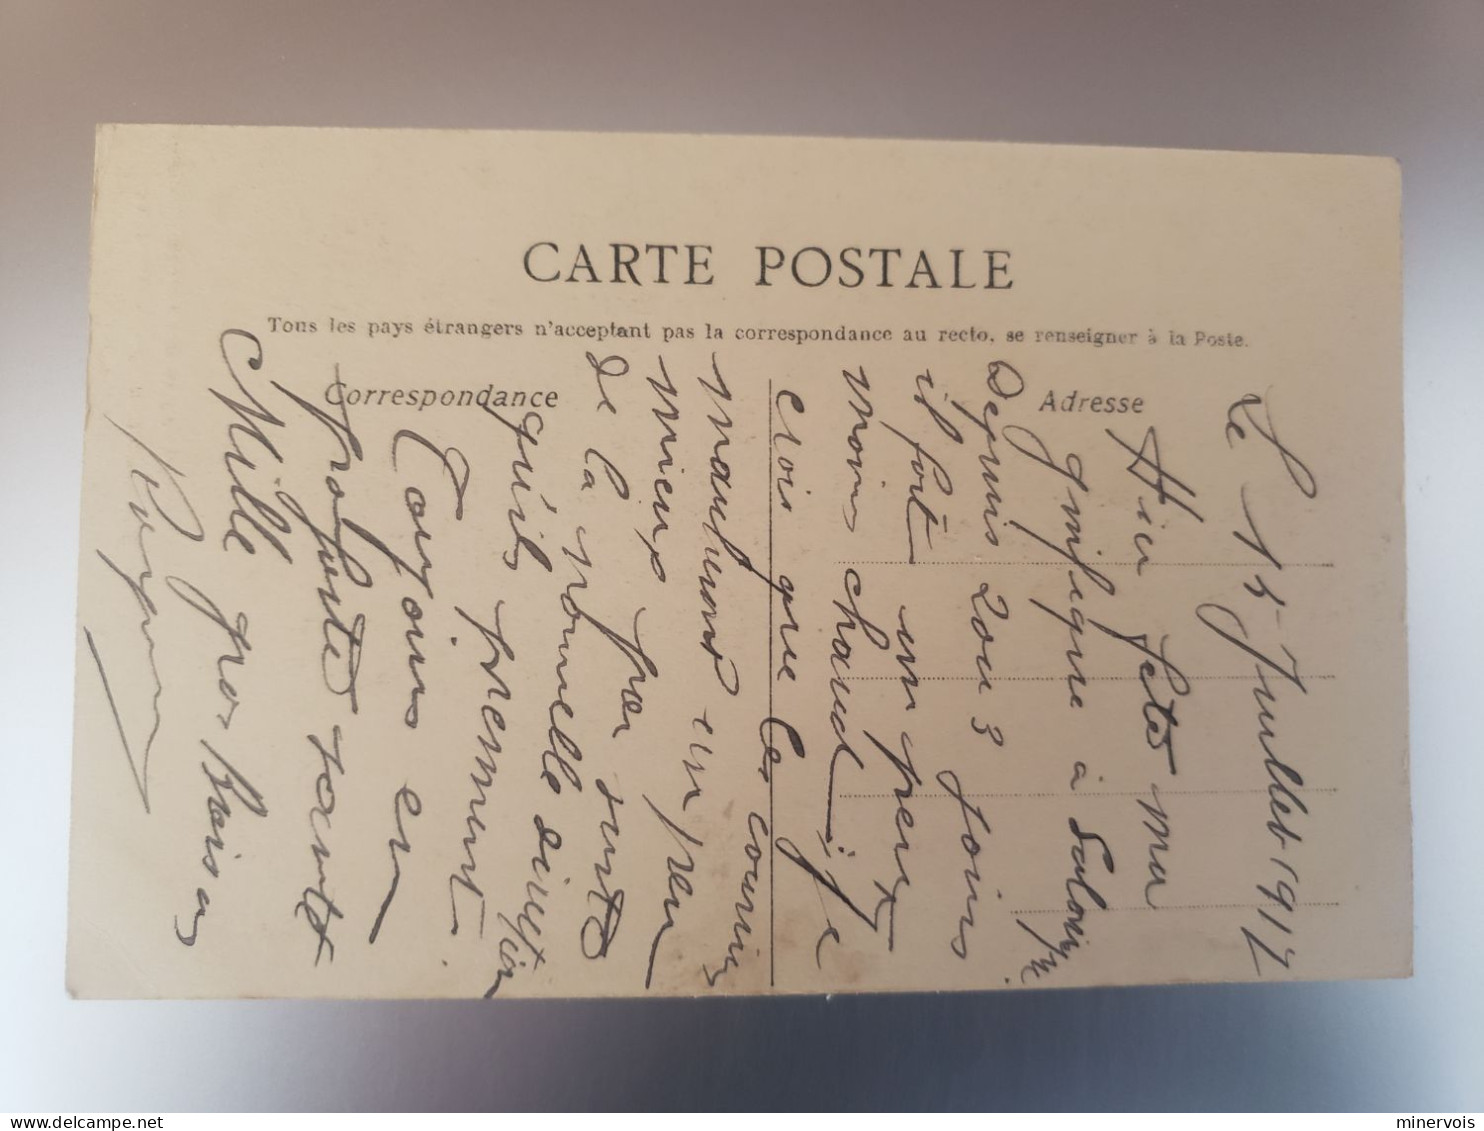 CARTE POSTALE
Tous les pays étrangers n'acceptant pas la correspondance au recto, se renseigner à la Poste.
Correspondance
Adresse
Le 15 Juillet 1917
Hier fetes ma
gnifique à Saloniq
Depuis 2 ou 3 jours
il fait un peux
moins chaud, je
crois que les courriers
marcheront un peu
mieux par suite
de la nouvelle direction
qu'ils prennent.
Toujours en
parfaite santé
Mille gros Baisers
minervois